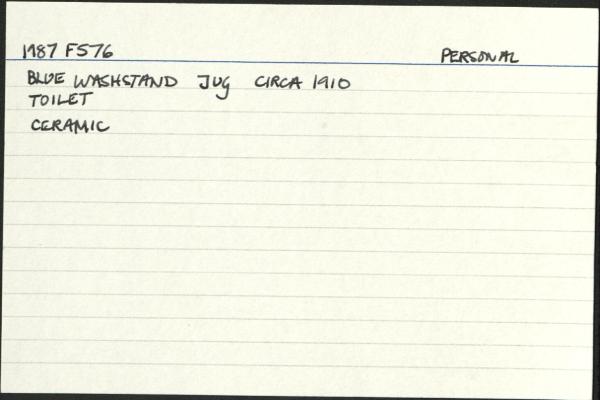 1987 F576 PERSONAL
BLUE WASHSTAND JUG CIRCA 1910
TOILET
CERAMIC